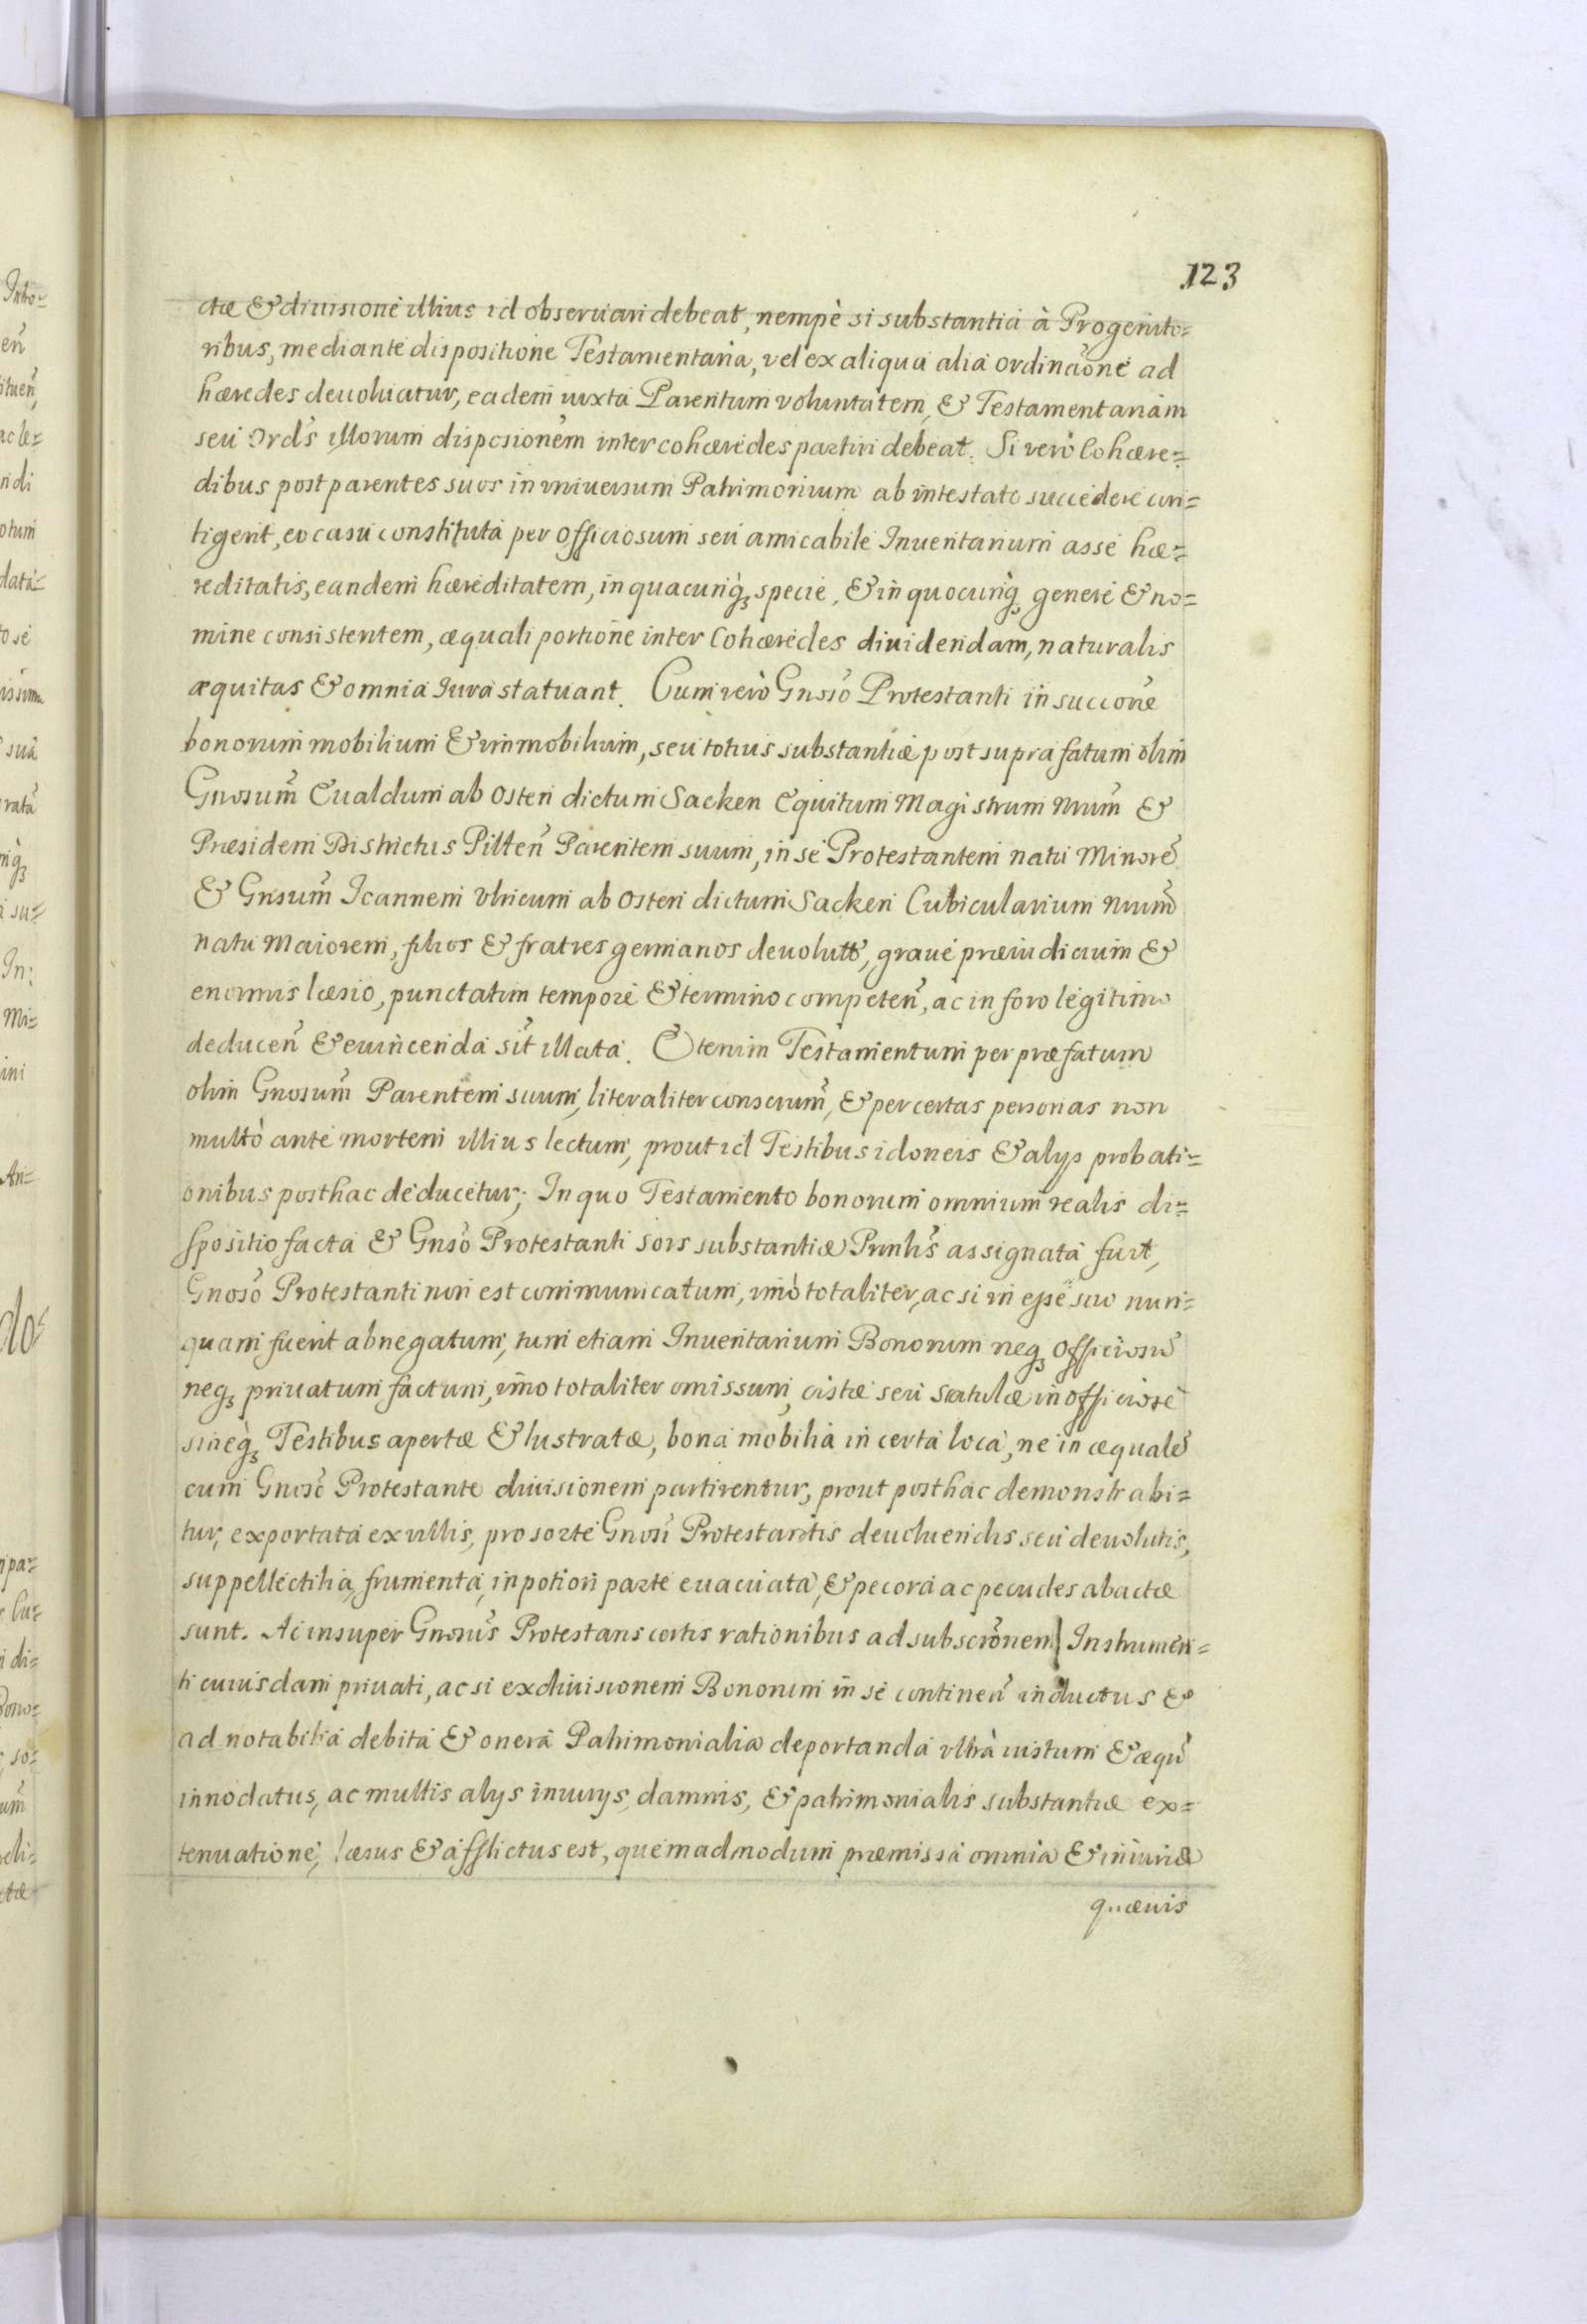 123
ctæ & diuisione illius id obseruari debeat, nempè si substantia à Progenito=
ribus, mediante dispositione Testamentaria, vel ex aliqua alia ordinãone ad
hæredes deuoluatur, eadem iuxta Parentum voluntatem, & Testamentariam
seu Ords̃ illorum disposionẽm inter cohæredes partiri debeat. Si verò Cohære=
dibus post parentes suos in vniuersum Patrimonium ab intestato succedere con=
tigerit, eo casu constituta per officiosum seu amicabile Inuentarium asse hæ=
reditatis, eandem hæreditatem, in quacunq̀ȝ specie, & in quocunq̀ȝ genere & no=
mine consistentem, æquali portione inter Cohæredes diuidendam, naturalis
æquitas & omnia Iura statuant. Cum verò Gnoso̊ Protestanti in succone̊
bonorum mobilium & immobilium, seu totius substantiæ post suprafatum olim
Gnosum̃ Eualdum ab Osten dictum Sacken Equitum Magistrum Nrum̃ &
Præsidem Districtus Pilteñ Parentem suum, in se Protestantem natu Minorẽ
& Gnsum̃ Ioannem Vlricum ab Osten dictum Sacken Cubicularium Nrum̃
natu Maiorem, filios & fratres germanos deuolutæ, graue præiudicium &
enormis læsio, punctatim tempore & termino competeñ, ac in foro legitimo
deduceñ & euincenda sit̃ illata. Etenim Testamentum per præfatum
olim Gnosum̃ Parentem suum, literaliter conscrum̃, & per certas personas non
multò ante mortem illius lectum, prout id Testibus idoneis & alys probati=
onibus posthac deducetur; In quo Testamento bonorum omnium realis di=
spositio facta & Gnso̊ Protestanti sors substantiæ Prnlis̃ assignata fuit,
Gnoso̊ Protestanti non est communicatum, imò totaliter, ac si in esse suo nun=
quam fuerit abnegatum, tum etiam Inuentarium Bonorum neqȝ officiosũ
neqȝ priuatum factum, imo totaliter omissum, cistæ seu scatulæ inofficiose
sineq̀ȝ Testibus apertæ & lustratæ, bona mobilia in certa loca, ne in æqualẽ
cum Gnoso̊ Protestante diuisionem partirentur, prout posthac demonstrabi=
tur, exportata ex villis, pro sorte Gnosi̊ Protestantis deuoluendis seu deuolutis,
suppellectilia, frumenta, in potiori parte euacuata, & pecora ac pecudes abactæ
sunt. Ac insuper Gnosus̃ Protestans certis rationibus ad subscrõnem Instrumen=
ti cuiusdam priuati, ac si exdiuisionem Bonorum in se contineñ inductus &
ad notabilia debita & onera Patrimonialia deportanda vltrà iustum & æqũ
innodatus, ac multis alys iniurys, damnis, & patrimonialis substantiæ ex=
tenuatione, læsus & afflictus est, quemadmodum præmissa omnia & iniuriæ
quæuis